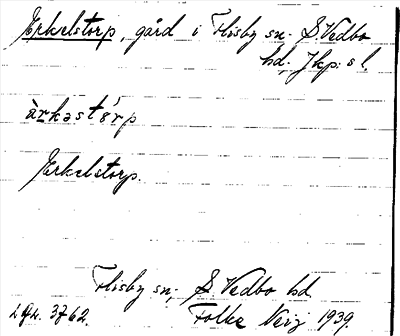 Erkelstorp, gård i Flisby sn. S. Vedbo
hd, Jkp:s l.
àrkəstór̀p
Erkelstorp.
Flisby sn, S. Vedbo hd
Folke Neij 1939